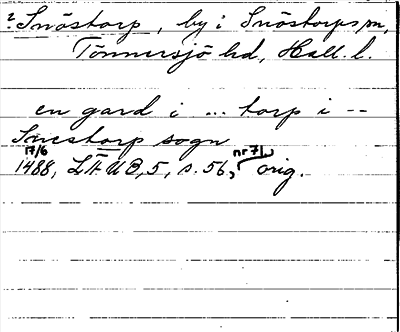 ? Snöstorp, by i Snöstorps sn,
Tönnersjö hd, Hall. l.
en gard i ... torp i --
Snestorp sogn
17/6 nr 71
1488, LÄUB, 5, s. 56, orig.